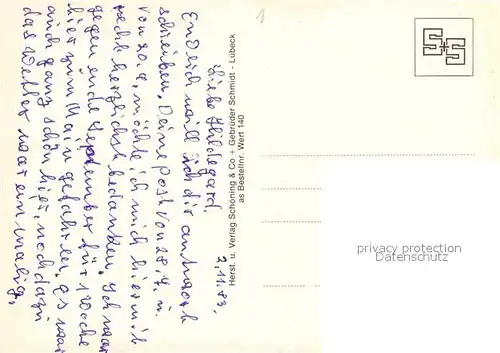 2.11.83.
Liebe Hildegard,
Endlich will ich dir antwort
schreiben. Deine Post von 28.7. u.
von 20.9. möchte ich mich hiermit
recht herzlichst bedanken. Ich war
gegen ende September für 1 Woche
hier zum Main gefahren, es war
auch ganz schön hier, noch dazu
das Wetter war einmalig,
Herst. u. Verlag Schöning & Co + Gebrüder Schmidt - Lübeck
as Bestellnr. Wert 140
S+S
1
privacy protection
Datenschutz